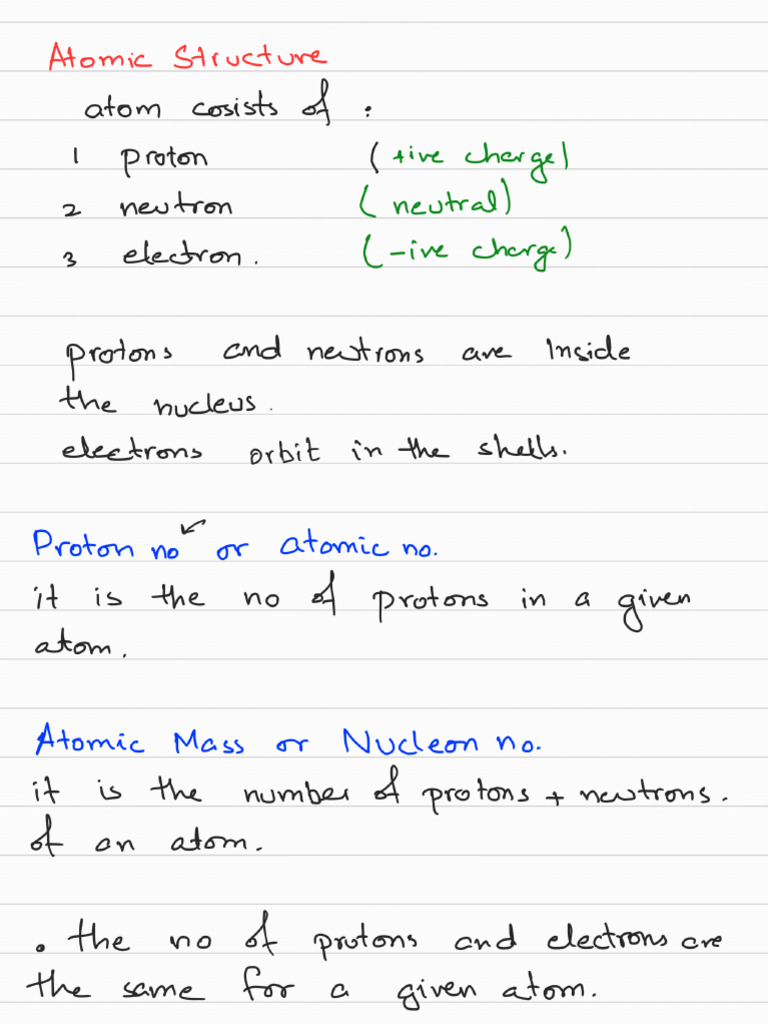 Atomic Structure
atom cosists of :
1 proton (+ive charge)
2 neutron (neutral)
3 electron. (-ive charge)
protons and neutrons are Inside
the nucleus.
electrons orbit in the shells.
Proton no or atomic no.
it is the no of protons in a given
atom.
Atomic Mass or Nucleon no.
it is the number of protons + neutrons.
of an atom.
. the no of protons and electrons are
the same for a given atom.